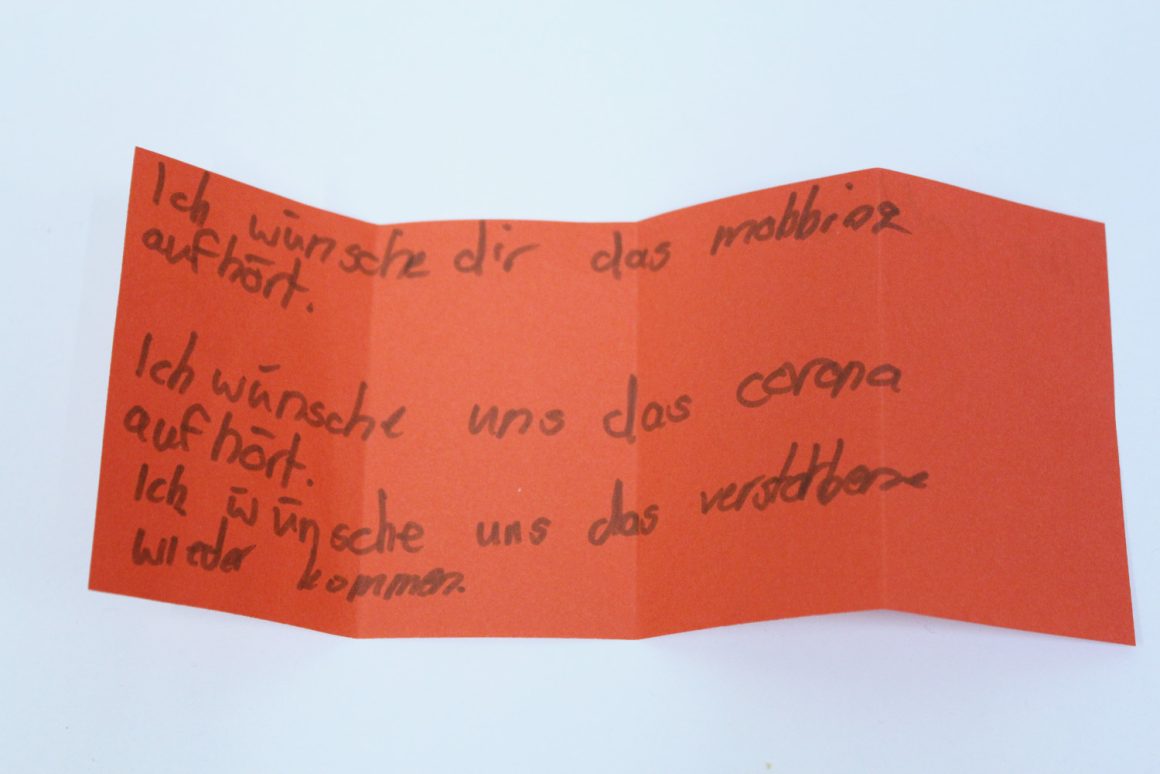 Ich wünsche dir das mobbing
aufhört.
Ich wünsche uns das corona
aufhört.
Ich wünsche uns das verstorbene
wieder kommen.